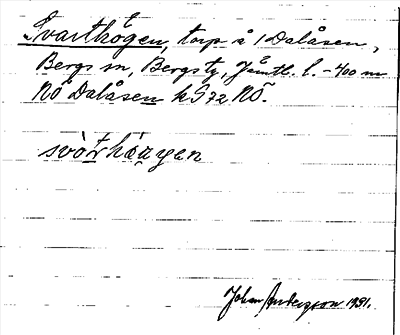 Svarthögen, torp å 1 Dalåsen,
Bergs sn, Bergs tg, Jämtl. l. - 400 m
NÖ Dalåsen k G 72 NÖ.
svòthǫ́gen
Johan Andersson 1931.